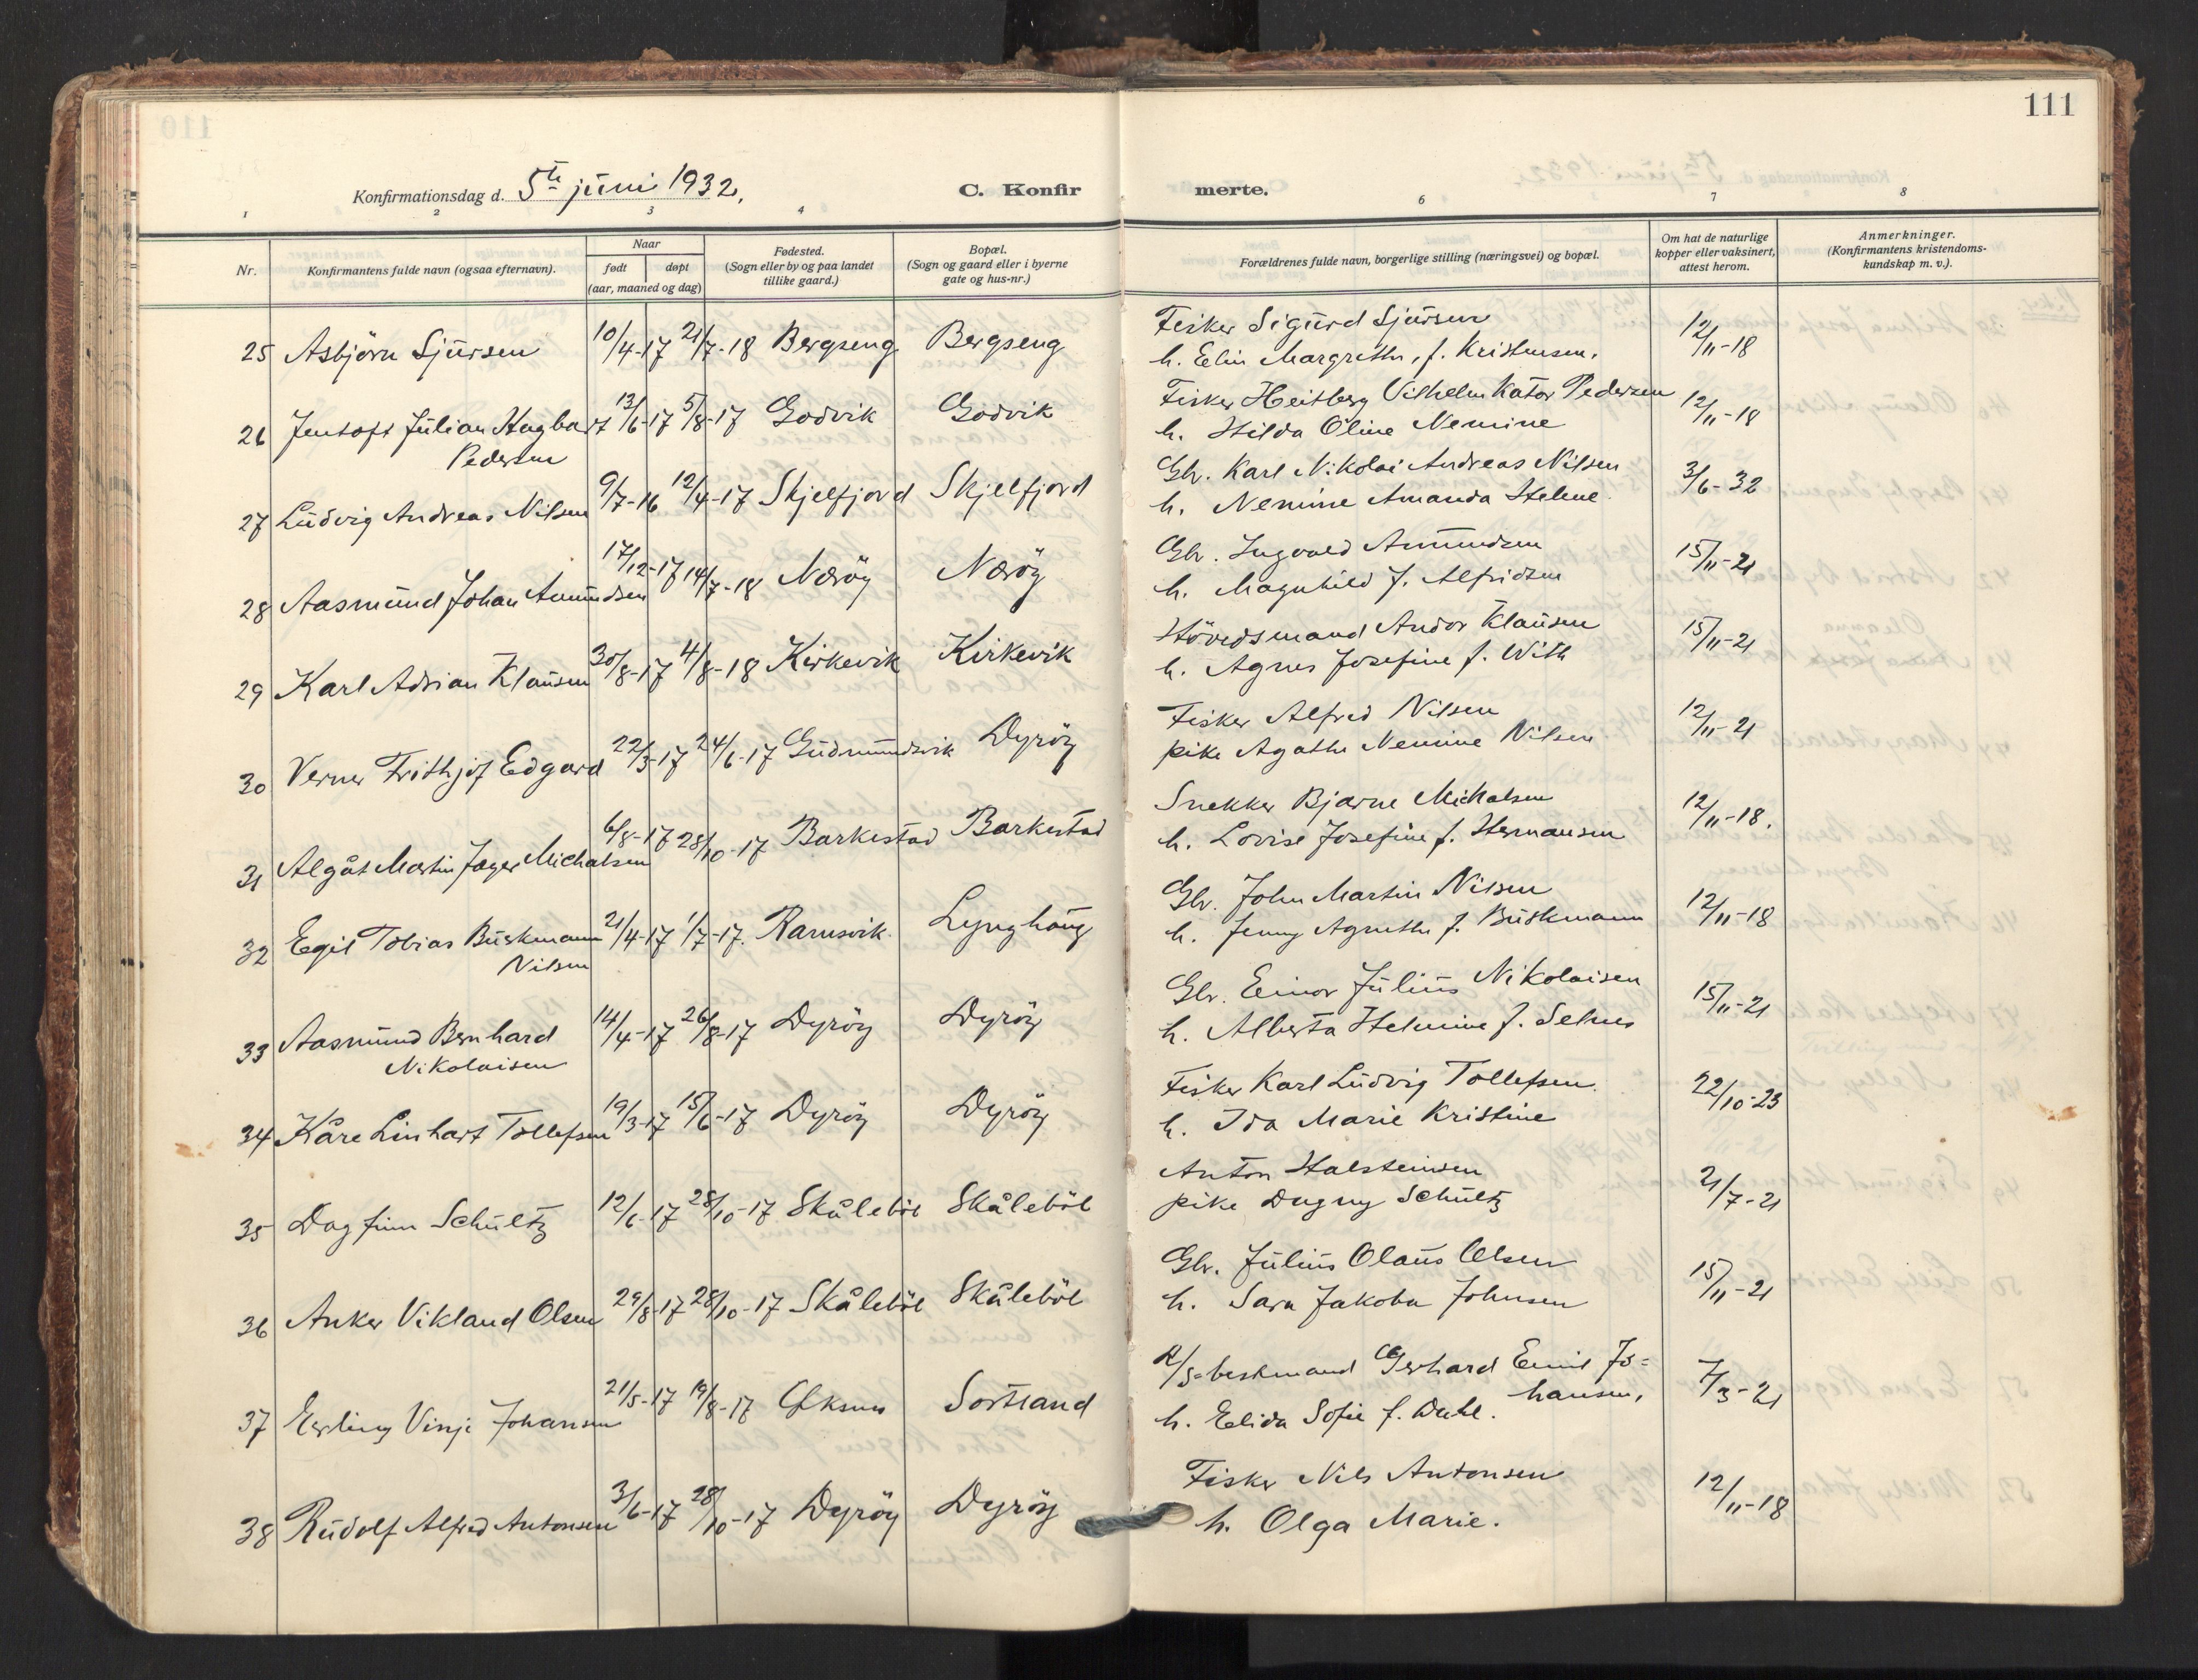 111
Konfirmationsdag d. 5te juni 1932.
C. Konfirmerte.
1 2 3 4 6 7 8
Nr. Konfirmantens fulde navn (ogsaa efternavn). Naar født døpt (aar, maaned og dag) Fødested. (Sogn eller by og paa landet tillike gaard.) Bopæl. (Sogn og gaard eller i byerne gate og hus-nr.) Forældrenes fulde navn, borgerlige stilling (næringsvei) og bopæl. Om hat de naturlige kopper eller vaksinert, attest herom. Anmerkninger. (Konfirmantens kristendoms-kundskap m. v.).
25 Asbjörn Sjursen 10/4-17 21/7-18 Bergseng Bergseng Fisker Sigurd Sjursen 12/11-18
h. Elin Margrethe, f. Kristensen.
26 Jentoft Julian Hagbart 13/6-17 5/8-17 Godvik Godvik Fisker Heitberg Vilhelm Kator Pedersen 12/11-18
Pedersen h. Hilda Oline Nemine
27 Ludvig Andreas Nilsen 9/7-16 12/4-17 Skjelfjord Skjelfjord Gbr. Karl Nikolai Andreas Nilsen 3/6-32
h. Nemine Amanda Helene.
28 Aasmund Johan Amundsen 17/12-17 14/7-18 Noröy Noröy Gbr. Ingvald Amundsen 15/11-21
h. Magnhild f. Alfridsen
29 Karl Adrian Klausen 30/8-17 4/8-18 Kirkevik Kirkevik Hövedsmand Andor Klausen 15/11-21
h. Agnes Josefine f. With
30 Verner Frithjof Edgard 22/3-17 24/6-17 Gudmundsvik Dyröy Fisker Alfred Nilsen 12/11-21
pike Agathe Nemine Nilsen
31 Algåt Martin Jager Michalsen 6/8-17 28/10-17 Barkestad Barkestad Snekker Bjarne Michalsen 12/11-18.
h. Lovise Josefine f. Hermansen
32 Egil Tobias Buskmann 21/4-17 1/7-17. Ramsvik. Lynghaug Gbr. John Martin Nilsen 12/11-18
Nilsen h. Jenny Agnethe f. Buskmann
33 Aasmund Bernhard 14/4-17 26/8-17 Dyröy Dyröy Gbr. Einor Julius Nikolaisen 15/11-21
Nikolaisen h. Alberta Helmine f. Selnes
34 Kåre Linhart Tollefsen 19/3-17 15/6-17 Dyröy Dyröy Fisker Karl Ludvig Tollefsen. 22/10-23
h. Ida Marie Kristine
35 Dagfinn Schultz 12/6-17 28/10-17 Skåleböl Skåleböl Anton Halsteinsen 21/7-21
pike Dagny Schultz
36 Anker Vikland Olsen 29/8-17 28/10-17 Skåleböl Skåleböl Gbr. Julius Olaus Olsen 15/11-21
h. Sara Jakoba Johnsen
37 Erling Vinje Johansen 21/5-17 19/8-17 Öksnes Sortland Gerhard Emil Jo= 7/3-21
hansen, h. Elida Sofie f. Dahl.
38 Rudolf Alfred Antonsen 3/6-17 28/10-17 Dyröy Dyröy Fisker Nils Antonsen 12/11-18
h. Olga Marie.